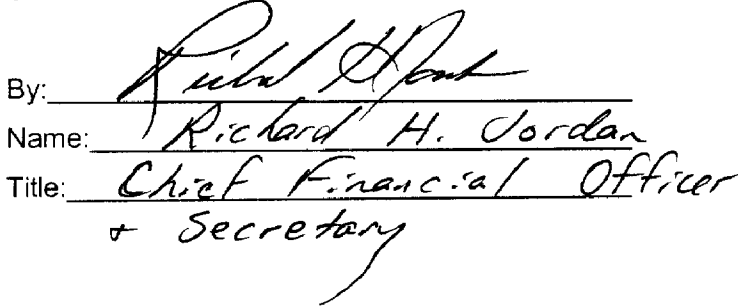 By:
Name: Richard H. Jordan
Title: Chief Financial Officer
+ Secretary